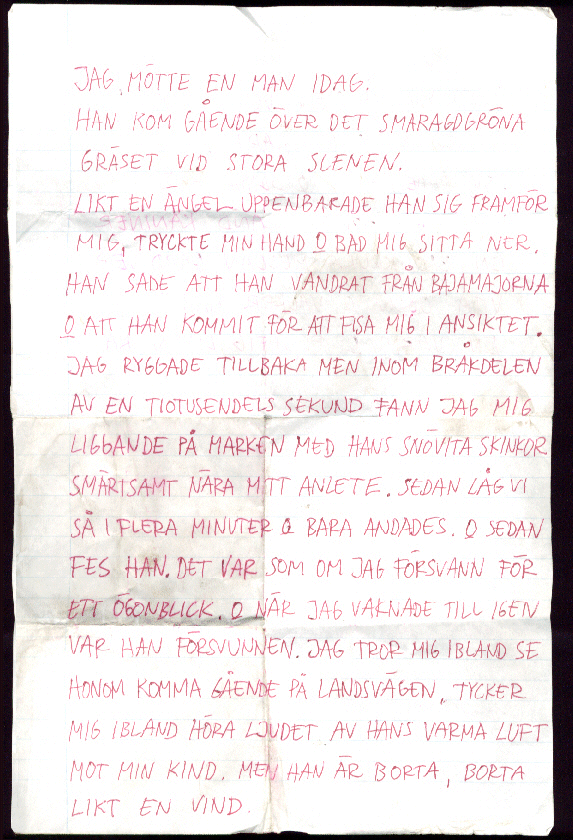 JAG MÖTTE EN MAN IDAG.
HAN KOM GÅENDE ÖVER DET SMARAGDGRÖNA
GRÄSET VID STORA SCENEN.
LIKT EN ÄNGEL UPPENBARADE HAN SIG FRAMFÖR
MIG, TRYCKTE MIN HAND O BAD MIG SITTA NER.
HAN SADE ATT HAN VANDRAT FRÅN BAJAMAJORNA
O ATT HAN KOMMIT FÖR ATT FISA MIG I ANSIKTET.
JAG RYGGADE TILLBAKA MEN INOM BRÅKDELEN
AV EN TIOTUSENDELS SEKUND FANN JAG MIG
LIGGANDE PÅ MARKEN MED HANS SNÖVITA SKINKOR
SMÄRTSAMT NÄRA MITT ANLETE. SEDAN LÅG VI
SÅ I FLERA MINUTER O BARA ANDADES. O SEDAN
FES HAN. DET VAR SOM OM JAG FÖRSVANN FÖR
ETT ÖGONBLICK. O NÄR JAG VAKNADE TILL IGEN
VAR HAN FÖRSVUNNEN. JAG TROR MIG IBLAND SE
HONOM KOMMA GÅENDE PÅ LANDSVÄGEN, TYCKER
MIG IBLAND HÖRA LJUDET AV HANS VARMA LUFT
MOT MIN KIND. MEN HAN ÄR BORTA, BORTA
LIKT EN VIND.